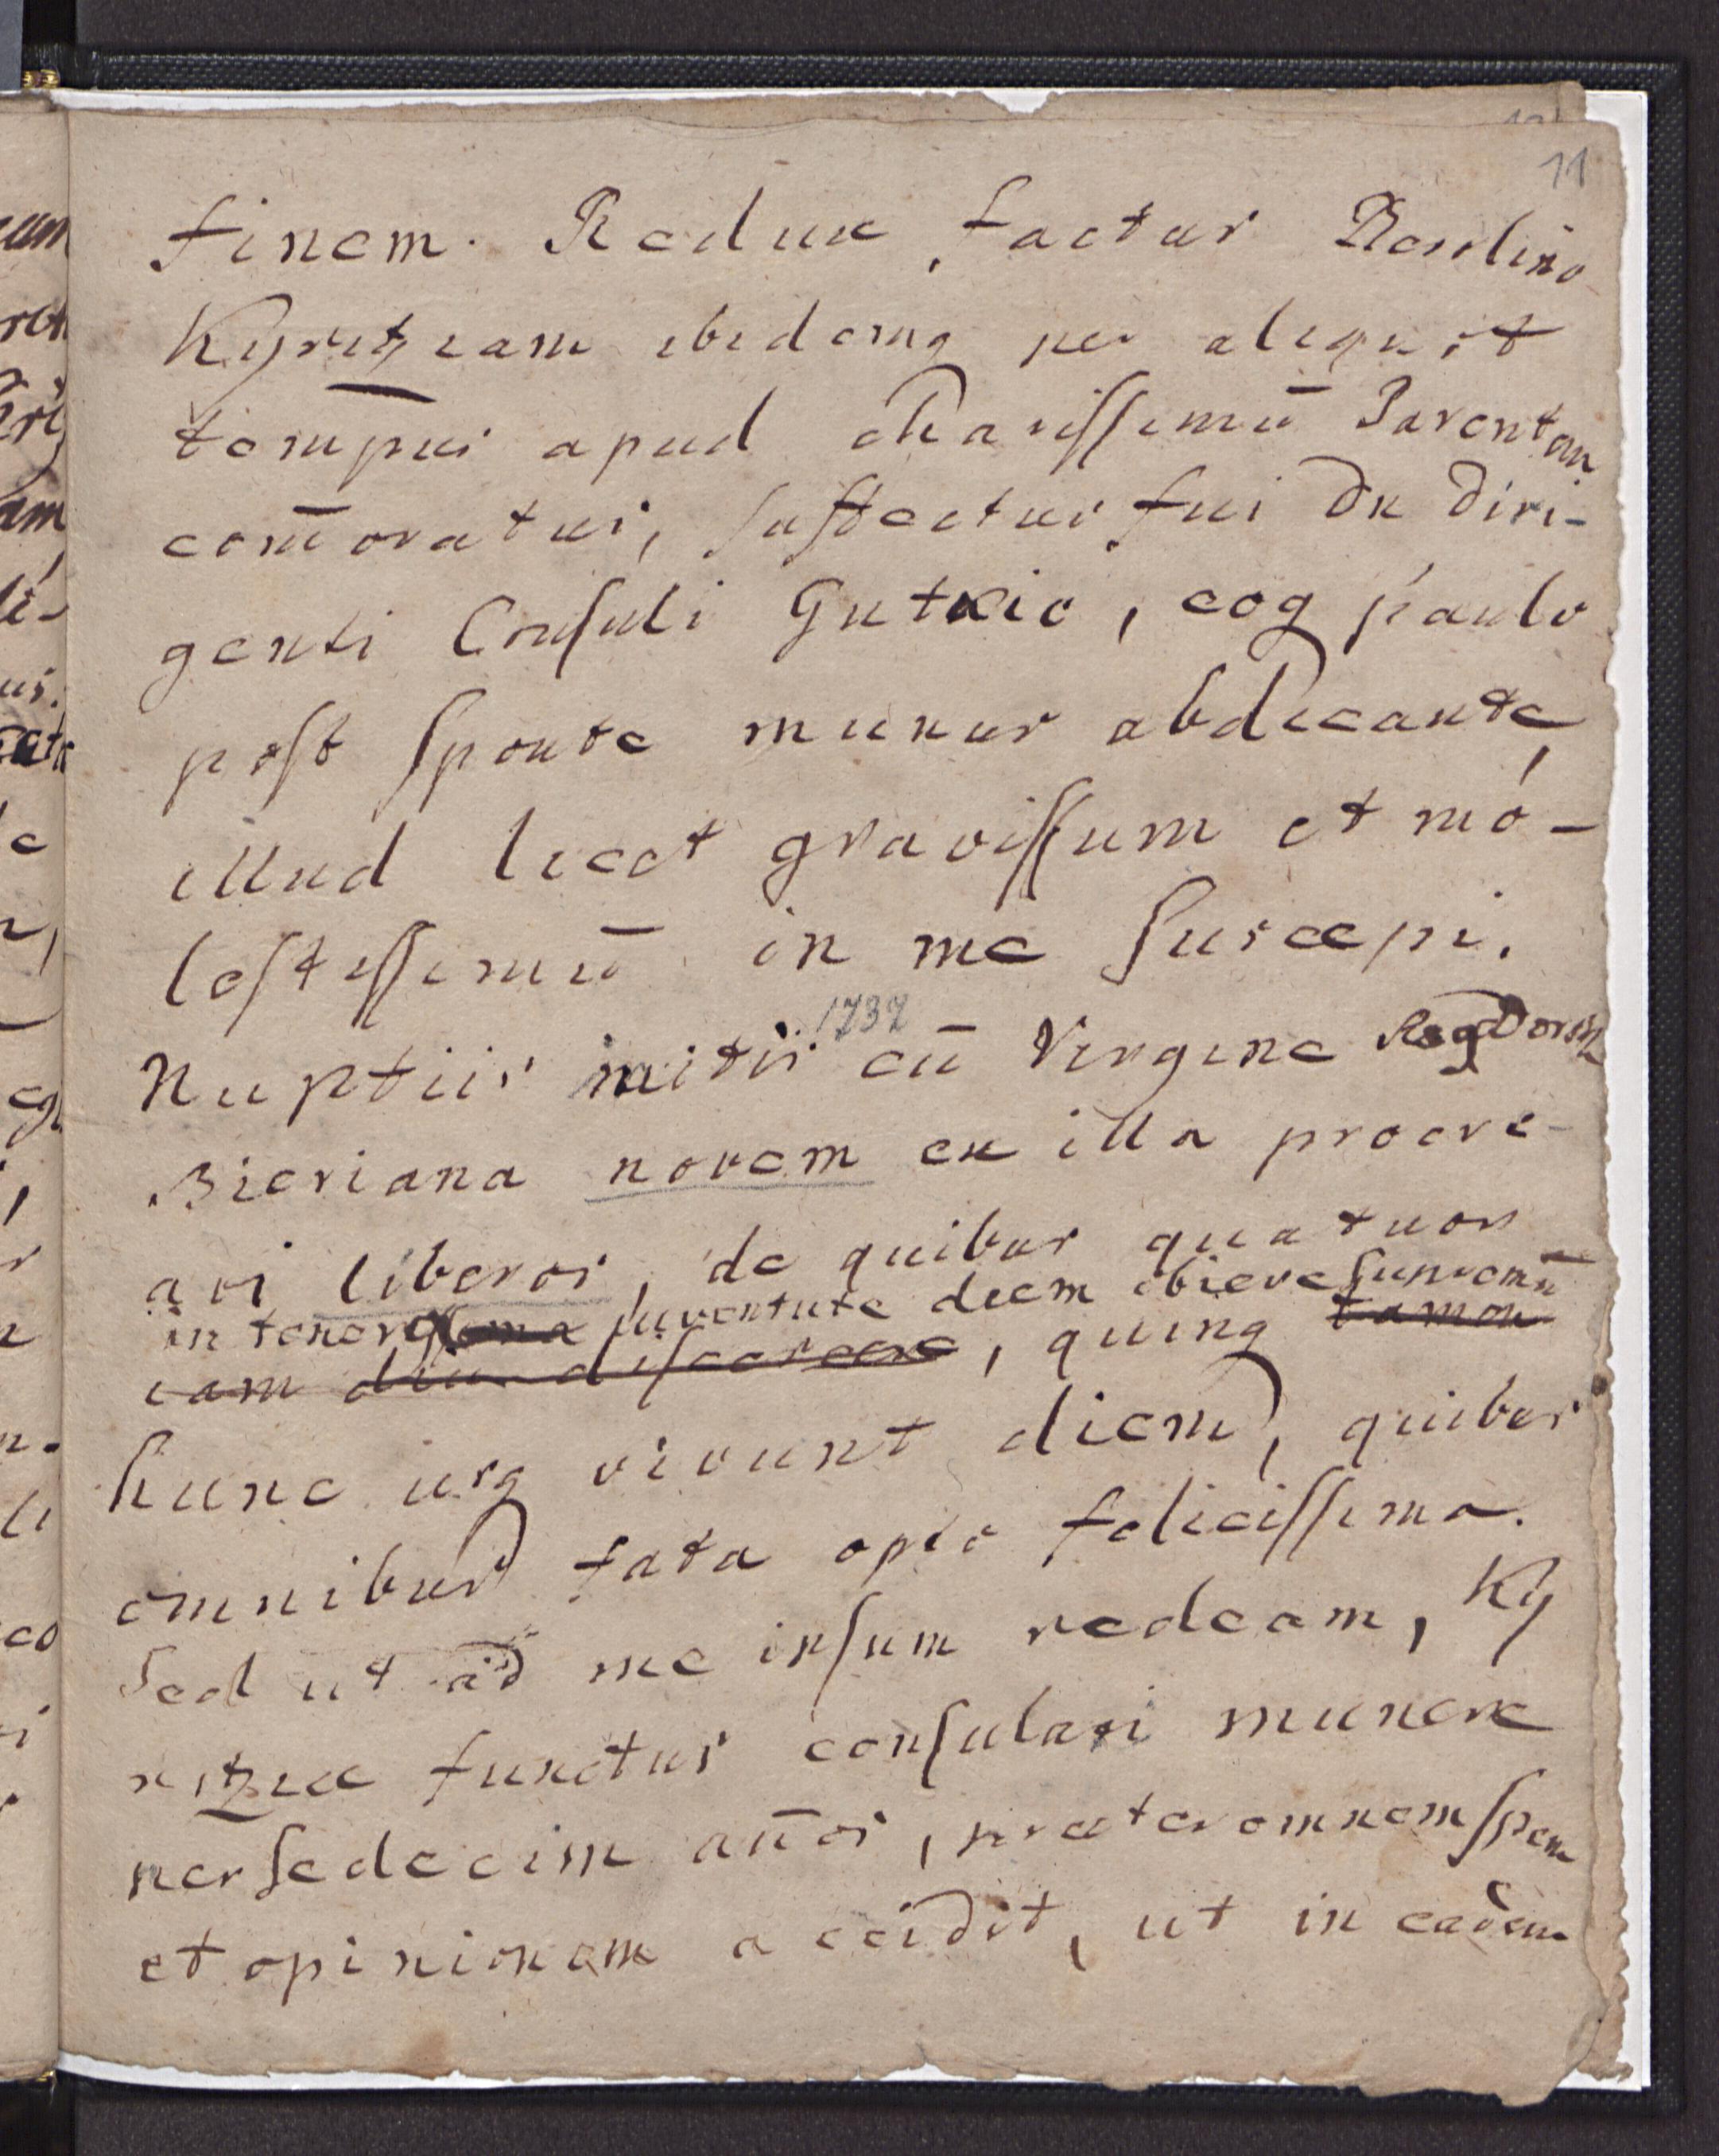 11
finem. Redux factus Berolino
Kyritziam ibidemq per aliquot
tempus apud charissimū Parentem
com̄oratus, suffectus fui Dn Diri-
genti Consuli Gutkio, eoq paulo
post sponte munus abdicante,
illud licet gravissum et mo-
lestissimū in me suscepi.
1737
Nuptiis initis cū Virgine Dor
Bieriana novem ex illa procre-
avi liberos, de quibus quatuor
in tener juventute diem obiere supremū
iam diu discessere, quinq tamen
hunc usq vivunt diem, quibus
omnibus fata opto felicissima.
Sed ut ad me ipsum redeam, Ky
ritziæ functus consulari munere
per sedecim an̄os, præter omnem spem
et opinionem accidit, ut in eadem